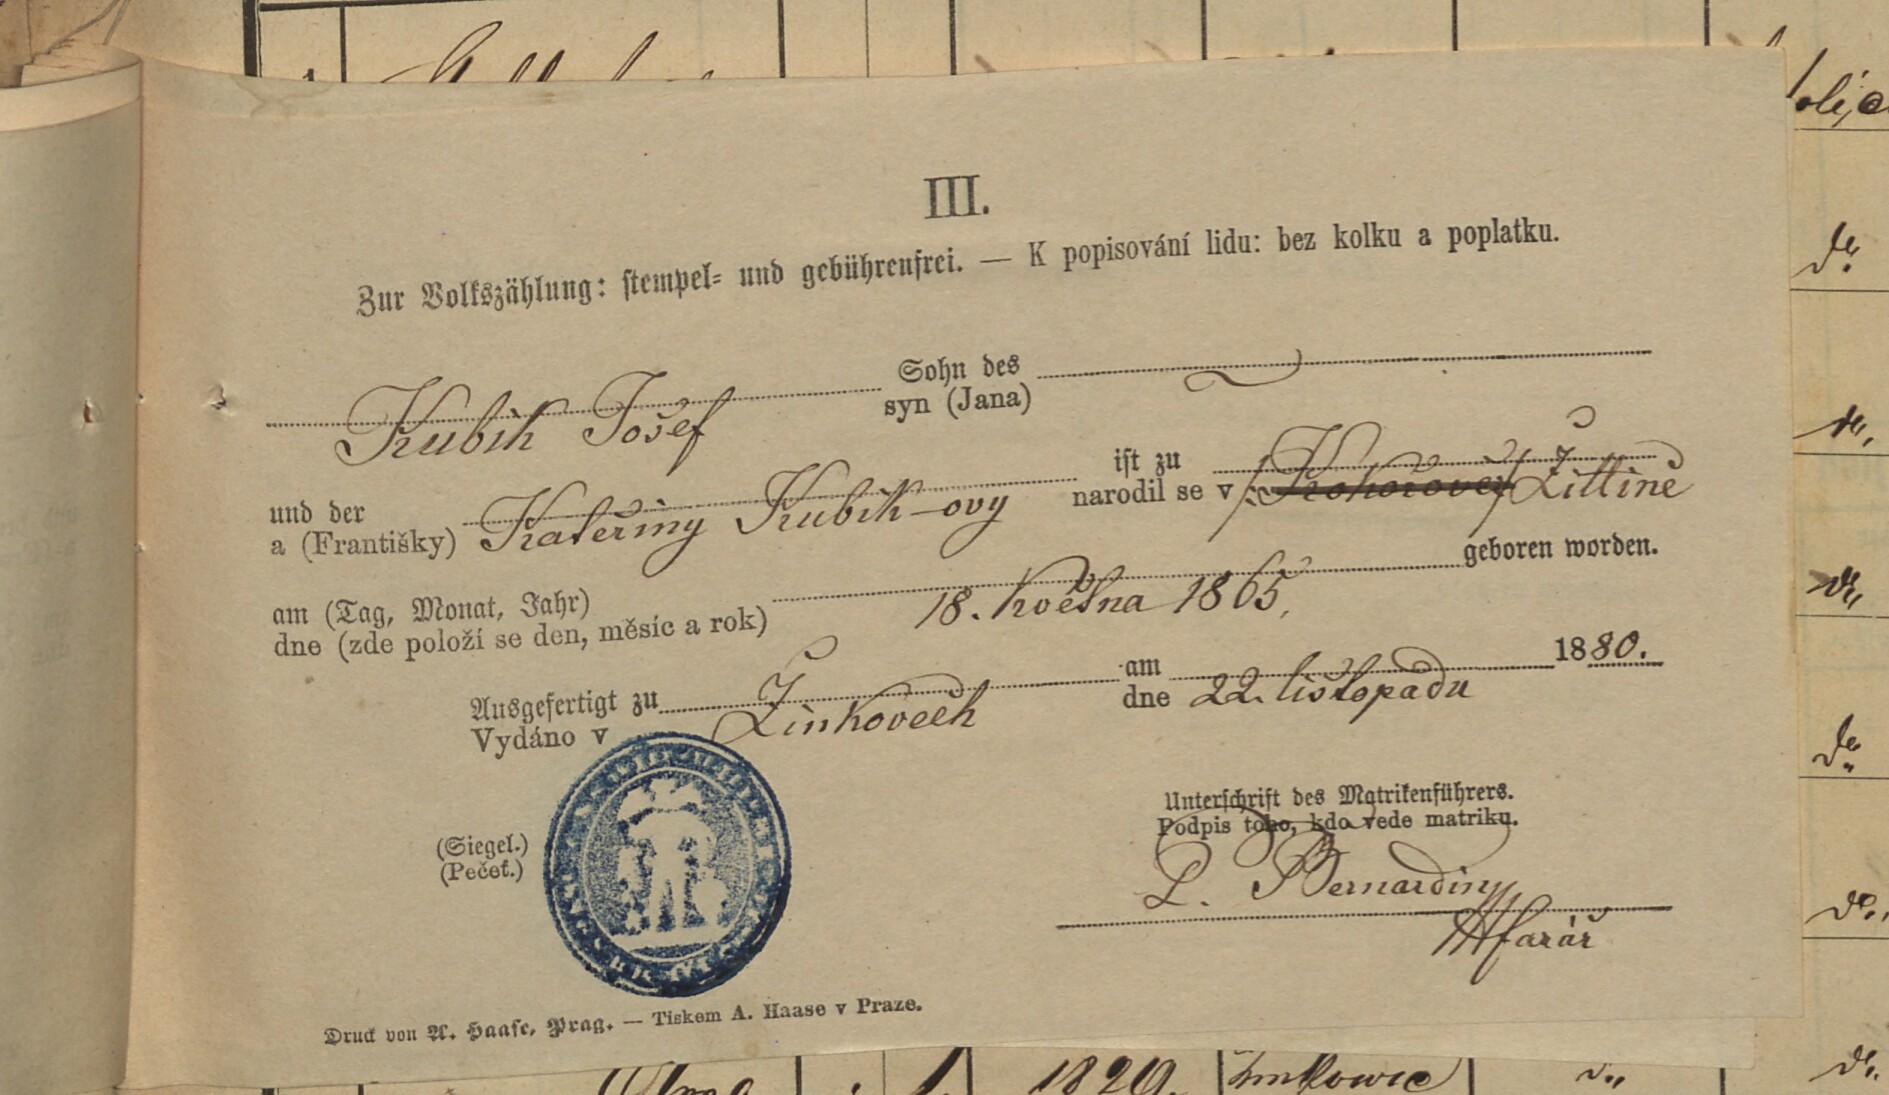 III.
Zur Volkszählung: stempel- und gebührenfrei. — K popisování lidu: bez kolku a poplatku.
Kubik Josef Sohn des
syn (Jana)
und der ist zu
a (Františky) Kateřiny Kubik-ovy narodil se v Žitíně
geboren worden.
am (Tag, Monat, Jahr)
dne (zde položí se den, měsíc a rok) 18. Května 1865,
Ausgefertigt zu am 1880.
Vydáno v Žinkovech dne 22. listopadu
Unterschrift des Matrikenführers.
Podpis toho, kdo vede matriku.
(Siegel.)
(Pečeť.)
L. Bernardiny
farář
Druck von A. Haase, Prag. — Tiskem A. Haase v Praze.
1820.